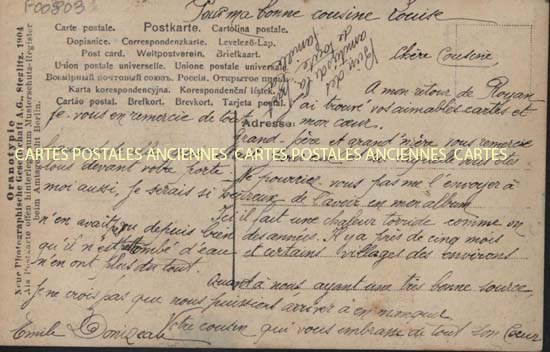 F00803
Pour ma bonne cousine Louise
Carte postale. Postkarte. Cartolina postale.
Dopisnice. Correspondenzkarte. Levelező-Lap.
Post card. Weltpostverein. Briefkaart.
Union postale universelle. Unione postale universale.
Всемірный почтовый союз. Россія. Открытое
Karta korespondencyjna. Korespondenční lístek.
Cartão postal. Brefkort. Brevkort. Tarjeta postal.
Adresse:
Oranotypie
Neue Photographische Gesellschaft A.G., Steglitz. 1904
Als Postkarte offen hinterlegt im Musterschutz-Register
beim Amtsgericht Berlin.
Bien des
amitiés de la
part de
toute la
famille
Chère Cousine,
A mon retour de Royan
j'ai trouvé vos aimables cartes et
je vous en remercie de tout mon cœur.
Grand-père et grand'mère vous remercie
CARTES POSTALES ANCIENNES CARTES POSTALES ANCIENNES CARTES
vous devant votre porte. Ne pourriez vous pas me l'envoyer à
moi aussi, je serais si heureux de l'avoir en mon album
Ici il fait une chaleur torride comme on
n'en avait vu depuis bien des années. Il y a près de cinq mois
qu'il n'est tombé d'eau et certains villages des environs
n'en ont plus du tout.
Quand à nous ayant une très bonne source,
Je ne crois pas que nous puissions arriver à en manquer
Votre cousin qui vous embrasse de tout son cœur
Emile Donizeau